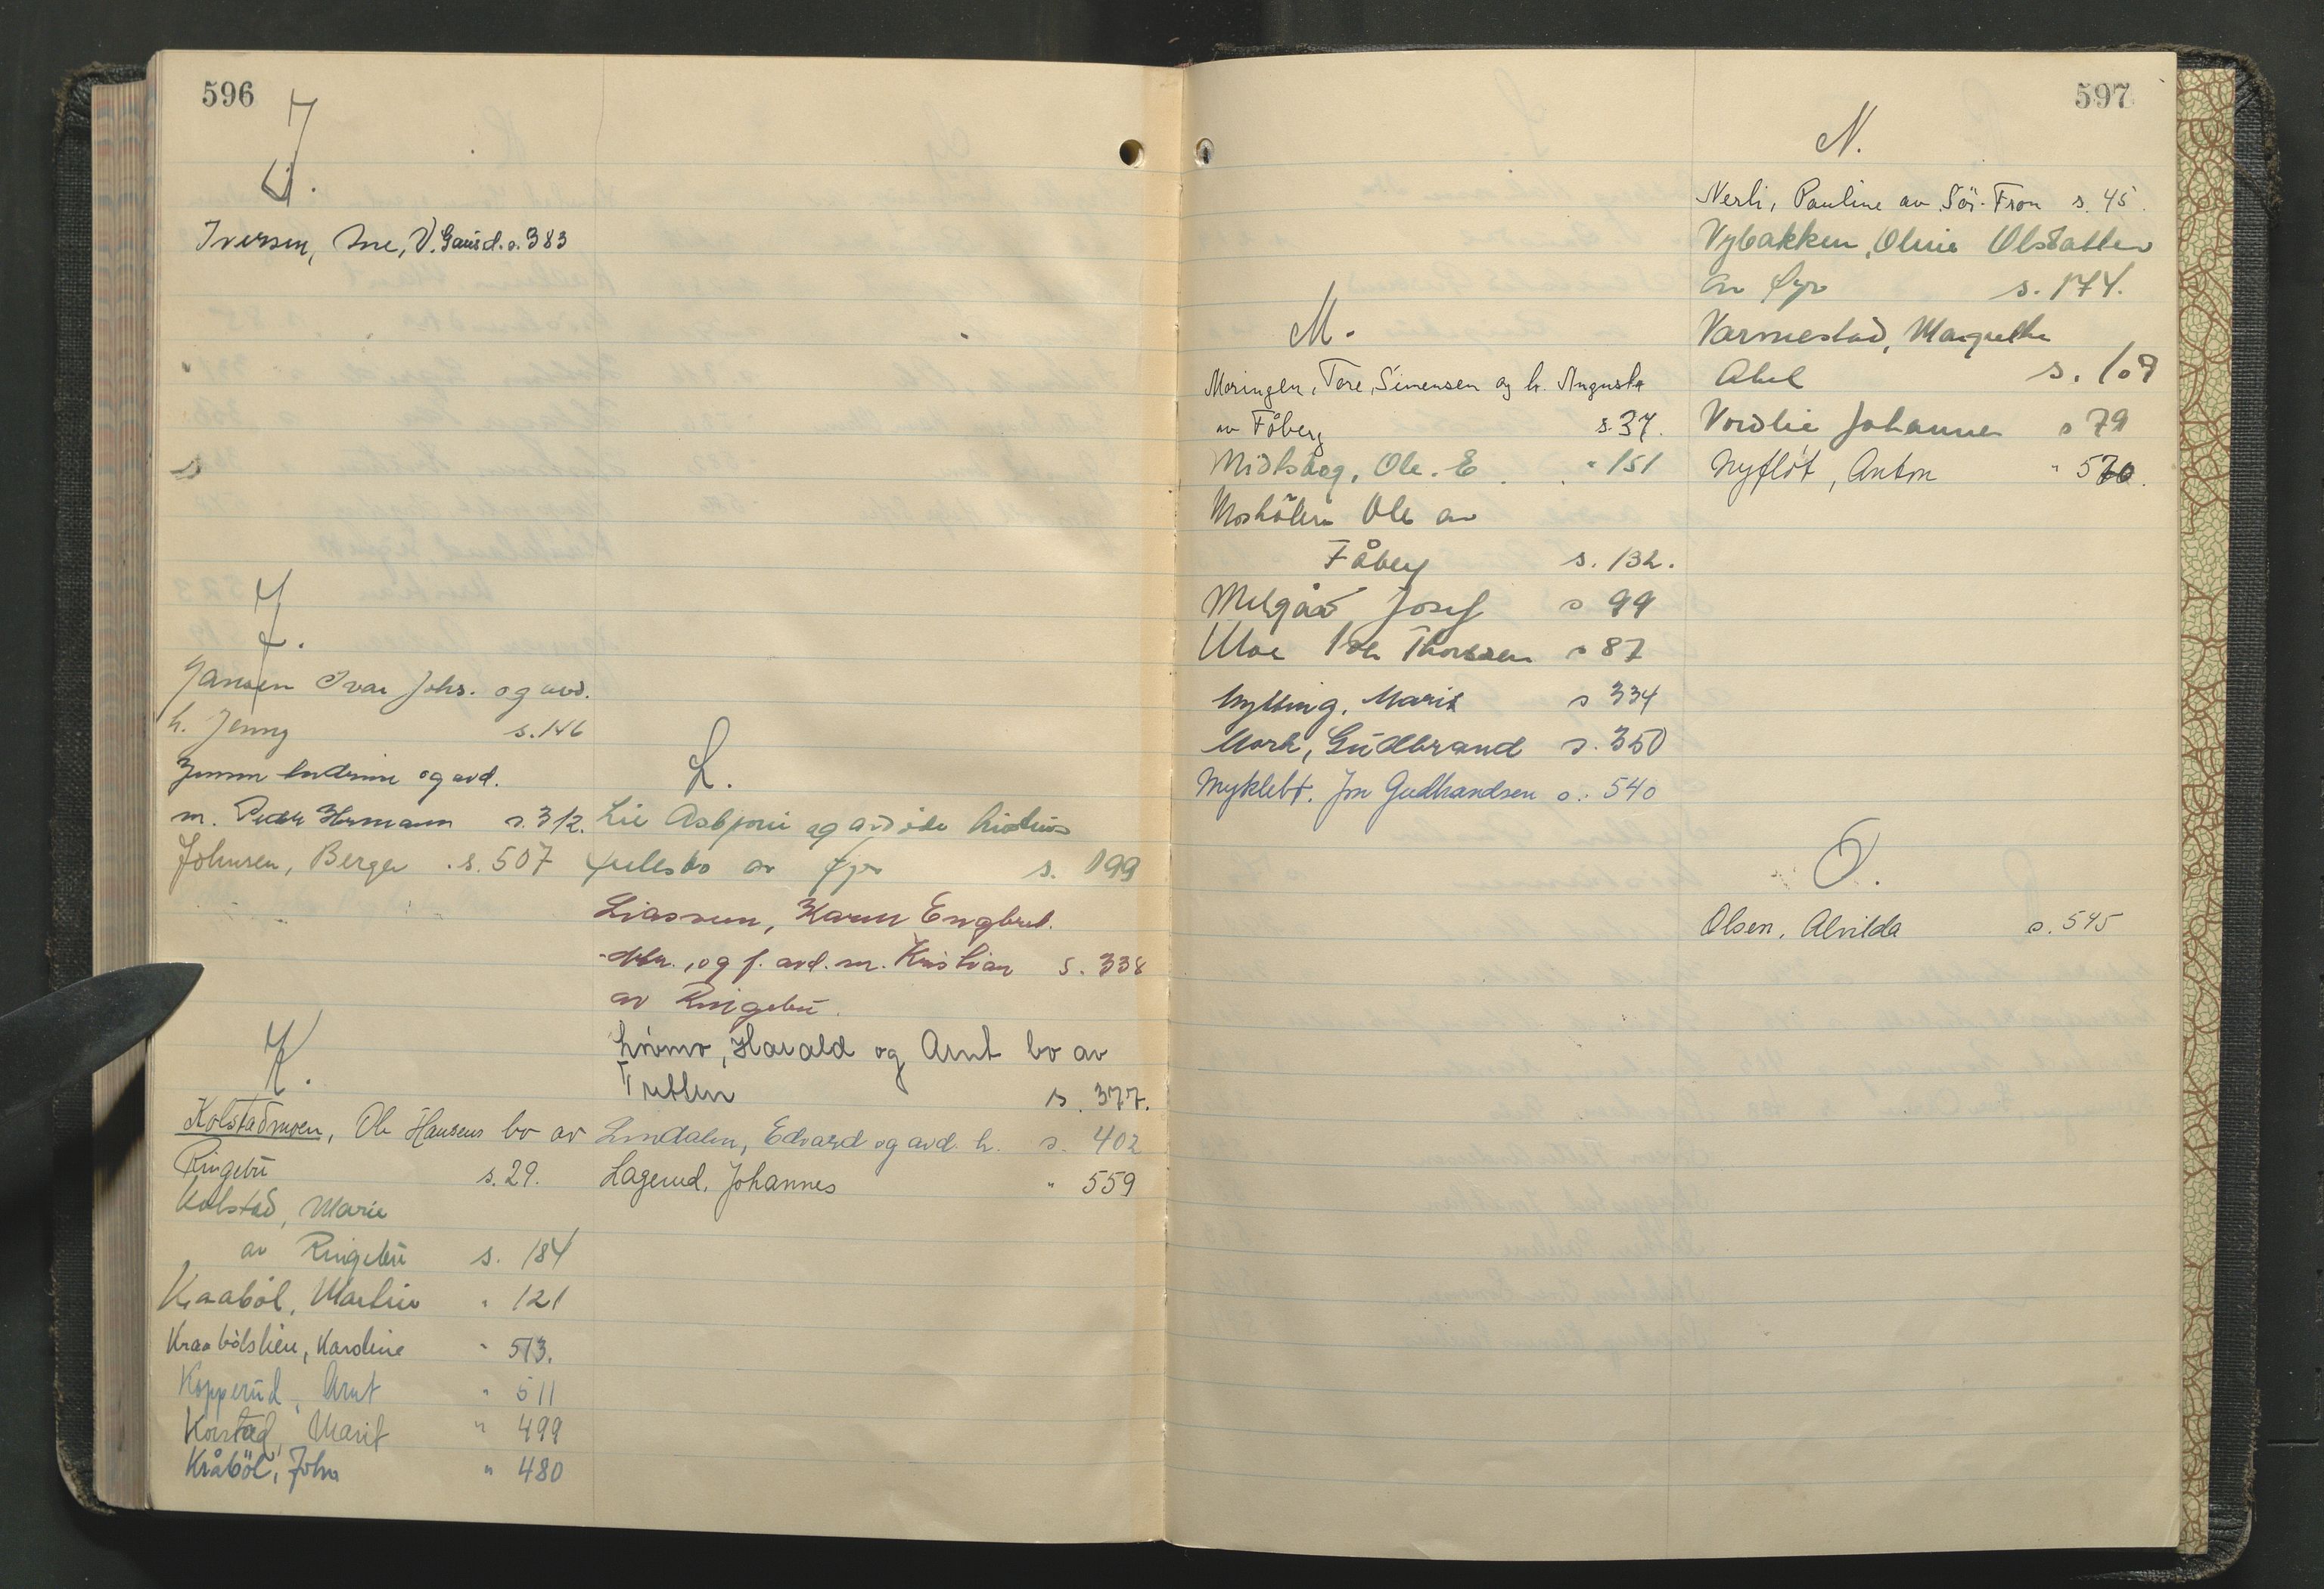 596
J.
Iversen, Ane, V. Gausd. s. 383
J.
Jansen Ivar Johs. og avd.
h. Jenny s. 146
Jensen og avd.
m. Peder Hermann s. 312.
Johnsen, Berger s. 507
K.
Kolstadmoen, Ole Hansens bo av
Ringebu s. 29.
Kolstad, Marie
av Ringebu s. 184
Kraaböl, Martin " 121
Kraabölslien, Karoline " 513.
Kopperud, Arnt " 511
Korstad, Marit " 499
Kråböl, John " 480
L.
Lie Asbjörn og avdöde hustrus
fellesbo av Öyer s. 199
Liasveen, Karen Engbret.
dtr., og f. avd. m. Kristian s. 338
av Ringebu.
Harald og Arnt bo av
Tretten s. 377.
Lindalen, Edvard og avd. h. s. 402
Lagerud, Johannes " 559
597
M.
Moringen, Tore, Simensen og h. Augusta
av Fåberg s. 37.
Midtskog, Ole. E " 151
Moshölen Ole av
Fåberg s. 132.
Melgård Josef s 99
Moe Thorsen s 87
Nytting, Marit s 334
Mork, Gudbrand s. 350
Myklebt. Jon Gudbrandsen s. 540
N.
Nerli, Pauline av Sör-Fron s. 45.
Nybakken, Oline Olsdatter
av Öyer s. 174.
Narmestad, Margrethe
Abel s. 109
Nordlie Johannes s 79
Nyflöt, Anton " 570.
O.
Olsen, Alvilda s. 545